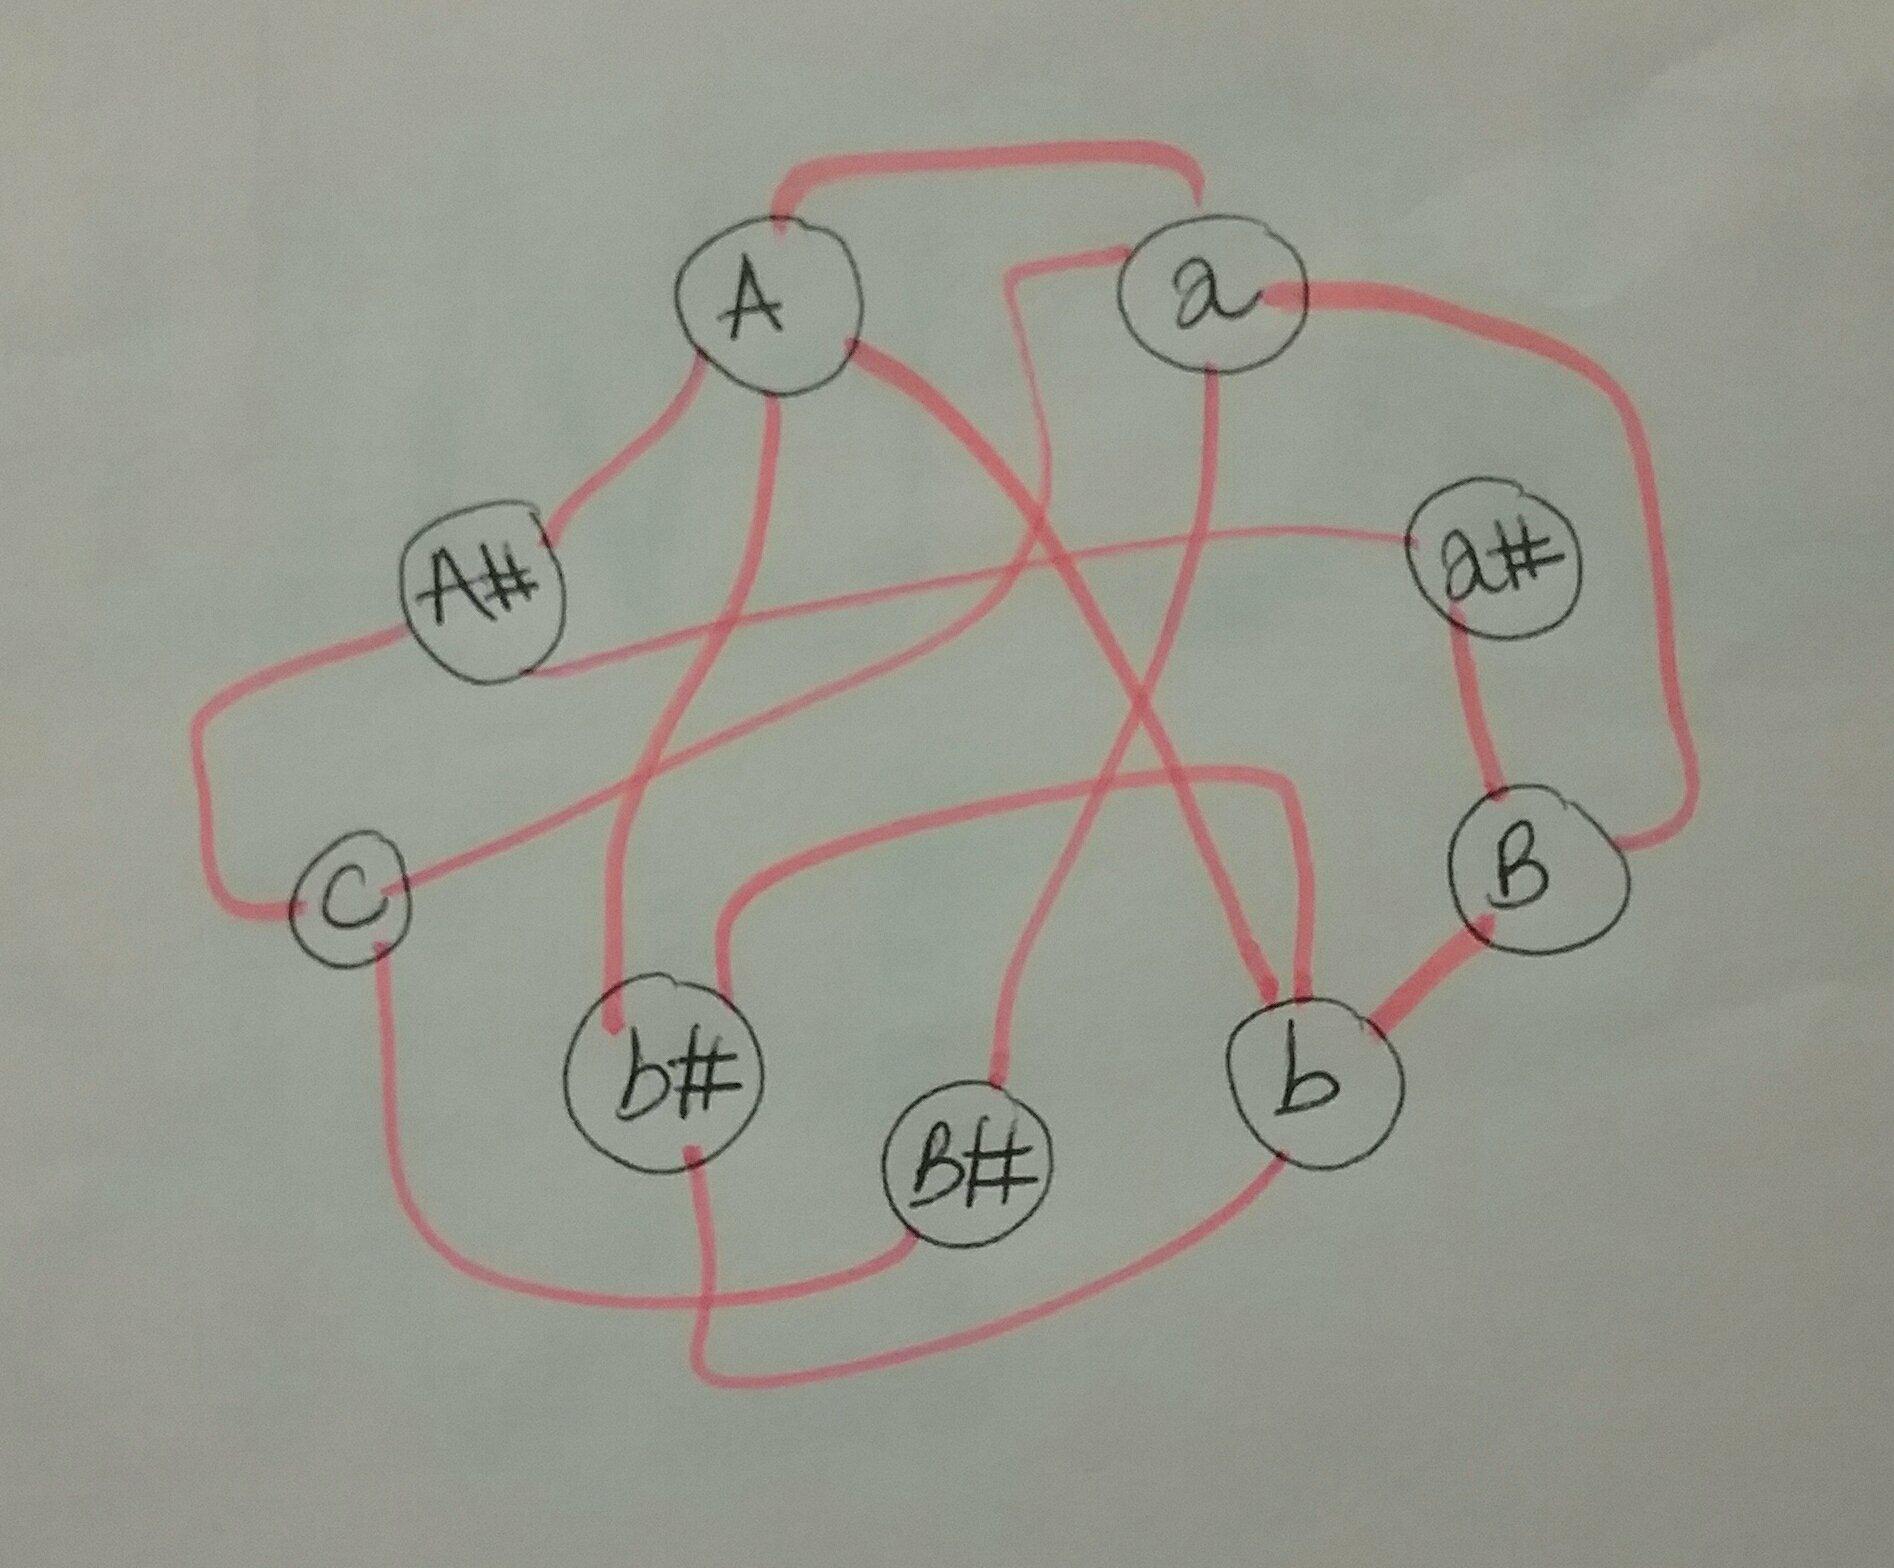 A
a
A#
a#
C
B
b#
B#
b